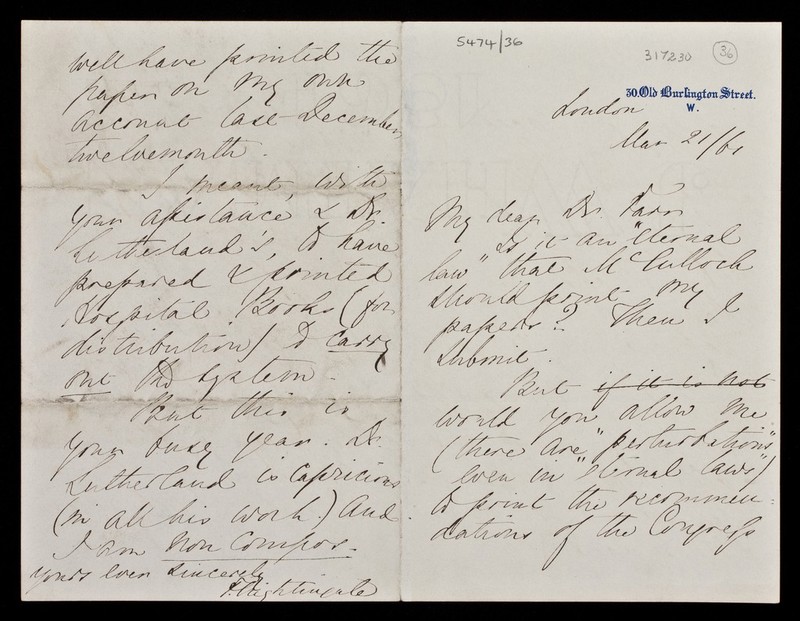 5474/36
317230
36
30. Old Burlington Street.
W.
London
Mar 21/61
My dear Dr. Farr
Is it an "eternal
law" that McCulloch
should print my
papers? Then I
submit.
But if it is not
would you allow me
(there are "perturbations",
even in "eternal laws")
to print the recommen-
dations of the Congress
well have printed the
papers on my own
account last December
twelvemonth.
I meant, with
your assistance & Dr.
Sutherland's, to have
prepared & printed
Hospital Books (for
distribution) to carry
out the system.
But this is
your busy year. Dr.
Sutherland is capricious
(in all his work.) And
I am non compos.
yours ever sincerely
F. Nightingale